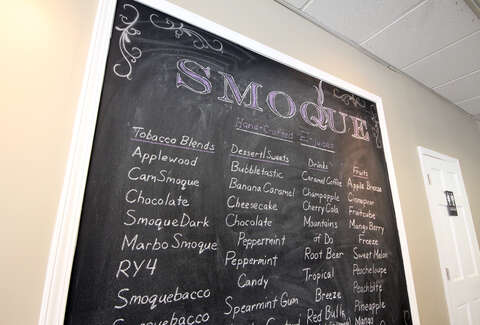 SMOQUE
Hand-Crafted E-Juices
Tobacco Blends
Applewood
CamSmoque
Chocolate
SmoqueDark
Marbo Smoque
RY4
Smoquebacco
Dessert/Sweets
Bubbletastic
Banana Caramel
Cheesecake
Chocolate
Peppermint
Peppermint
Candy
Spearmint Gum
Drinks
Caramel Coffee
Champapple
Cherry Cola
Mountains
of Do
Root Beer
Tropical
Breeze
Red Bulls
Fruits
Apple Breeze
Fruitcube
Mango Berry
Freeze
Sweet Melon
Pacheloupe
Peachbitz
Pineapple
Mango